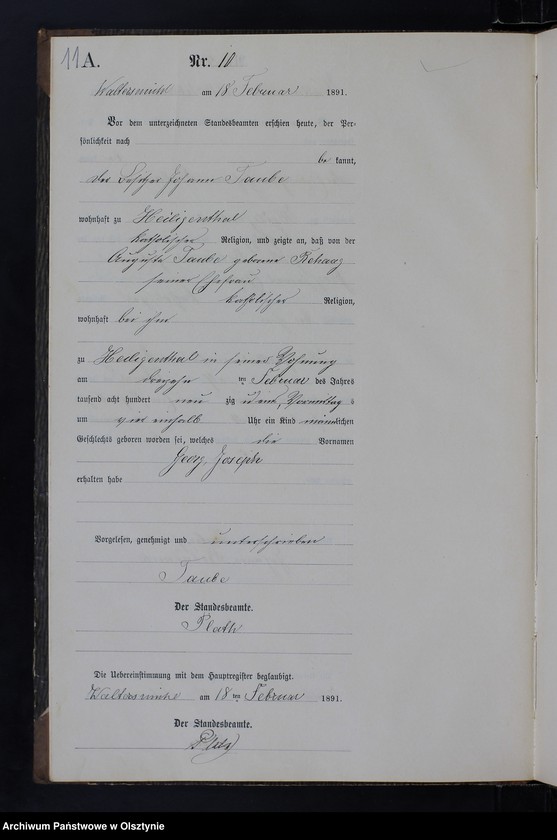 11 A. Nr. 10
Waltersmühl am 18 Februar 1891.
Vor dem unterzeichneten Standesbeamten erschien heute, der Per-
sönlichkeit nach
be kannt,
der Besitzer Johann Taube
wohnhaft zu Heiligenthal
katholischer Religion, und zeigte an, daß von der
Auguste Taube geborne Rehaag
seiner Ehefrau
katholischer Religion,
wohnhaft bei ihm
zu Heiligenthal in seiner Wohnung
am dreizehn ten Februar des Jahres
tausend acht hundert neun zig und ein, Vormittag s
um vier einhalb Uhr ein Kind männlichen
Geschlechts geboren worden sei, welches die Vornamen
Georg Joseph
erhalten habe
Vorgelesen, genehmigt und unterschrieben
Taube
Der Standesbeamte.
Plath
Die Uebereinstimmung mit dem Hauptregister beglaubigt.
Waltersmühl am 18 ten Februar 1891.
Der Standesbeamte.
Plath
Archiwum Państwowe w Olsztynie